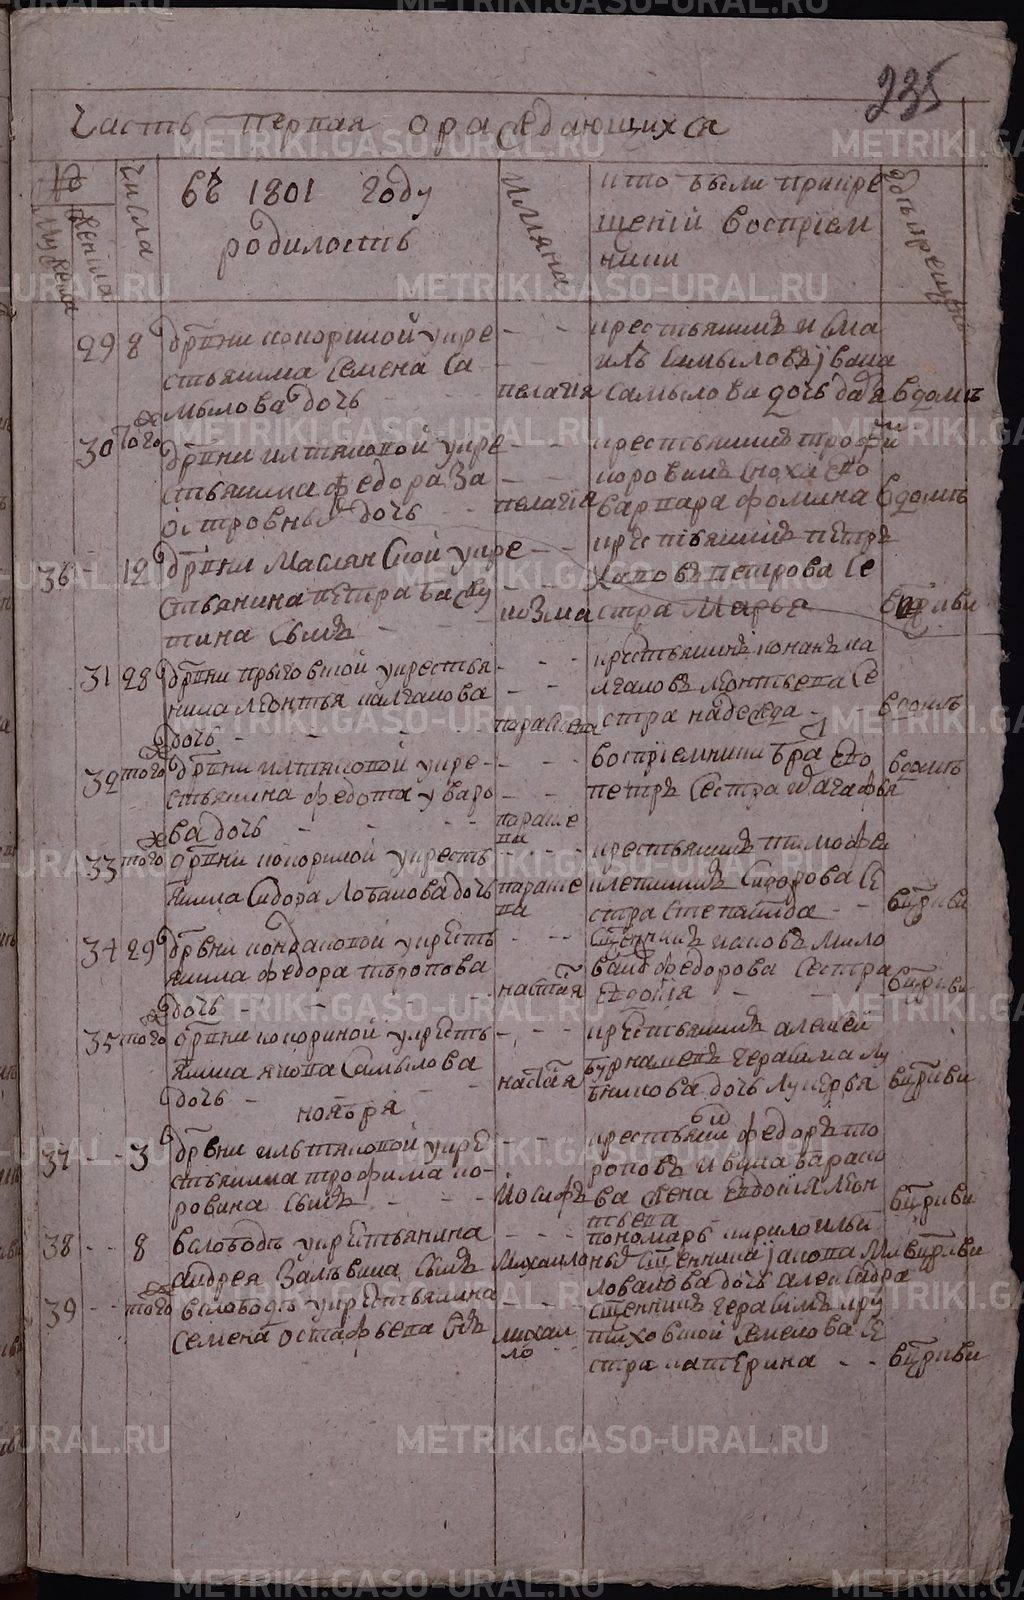 235
Часть первая о раждающихся
№
Мужеска
Женска
Числа
Въ 1801 году
родилость
Имяна
кто были при кре
щеніи воспріем
ники
Гдѣ крещены
29 8 дрвни кокориной у кре
стьянина Семена Са
мылова дочь
пелагія
крестьянинъ Исма
илъ Самыловъ
Самылова дочь
в домѣ
30 того ж дрвни илтяковой у кре
стьянина федора За
островных дочь
пелагія
крестьянинъ трофи
коровинъ сноха ево
варвара фомина
в домѣ
36 12 дрвни Маслянской у кре
стьянина петра
сынъ
козма
крестьянинъ петръ
петрова се
стра Марья
в цркви
31 28 дрвни прыговской у крестья
нина леонтья калганова
дочь
параскева
крестьянинъ конанъ ка
лгановъ леонтьева се
стра надежда
в домѣ
32 того ж дрвни илтяковой у кре
стьянина федота уваро
ва дочь
параске
ва
воспріемники бра ево
петръ сестра агафья
в домѣ
33 того ж дрвни кокориной у кресть
янина Сидора Лобанова дочь
параске
ва
крестьянинъ тимофе
Сидорова се
стра степанида
в цркви
34 29 дрвни кондаковой у кресть
янина федора торопова
дочь
настася
Сщенникъ иаковъ мило
вановъ федорова сестра
евдокія
в цркви
35 того ж дрвни кокориной у кресть
янина якова Самылова
дочь
настася
крестьянинъ алексей
герасима лу
кинова дочь лукерья
в цркви
ноября
37 3 дрвни ильтяковой у кре
стьянина трофима ко
ровина сынъ
Иосифъ
крестьяни федоръ то
роповъ
ва жена евдокія леон
тьева
в цркви
38 8 в слободѣ у крестьянина
андрея Зальвина сынъ
Михаило
пономарь кирило ильи
ных Сщенника іакова Ми
лованова дочь александра
в цркви
39 того ж в слободѣ у крестьянина
семена остафьева снъ
михаи
ло
Сщенникъ герасимъ кру
тиховской семенова се
стра катерина
в цркви
METRIKI.GASO-URAL.RU